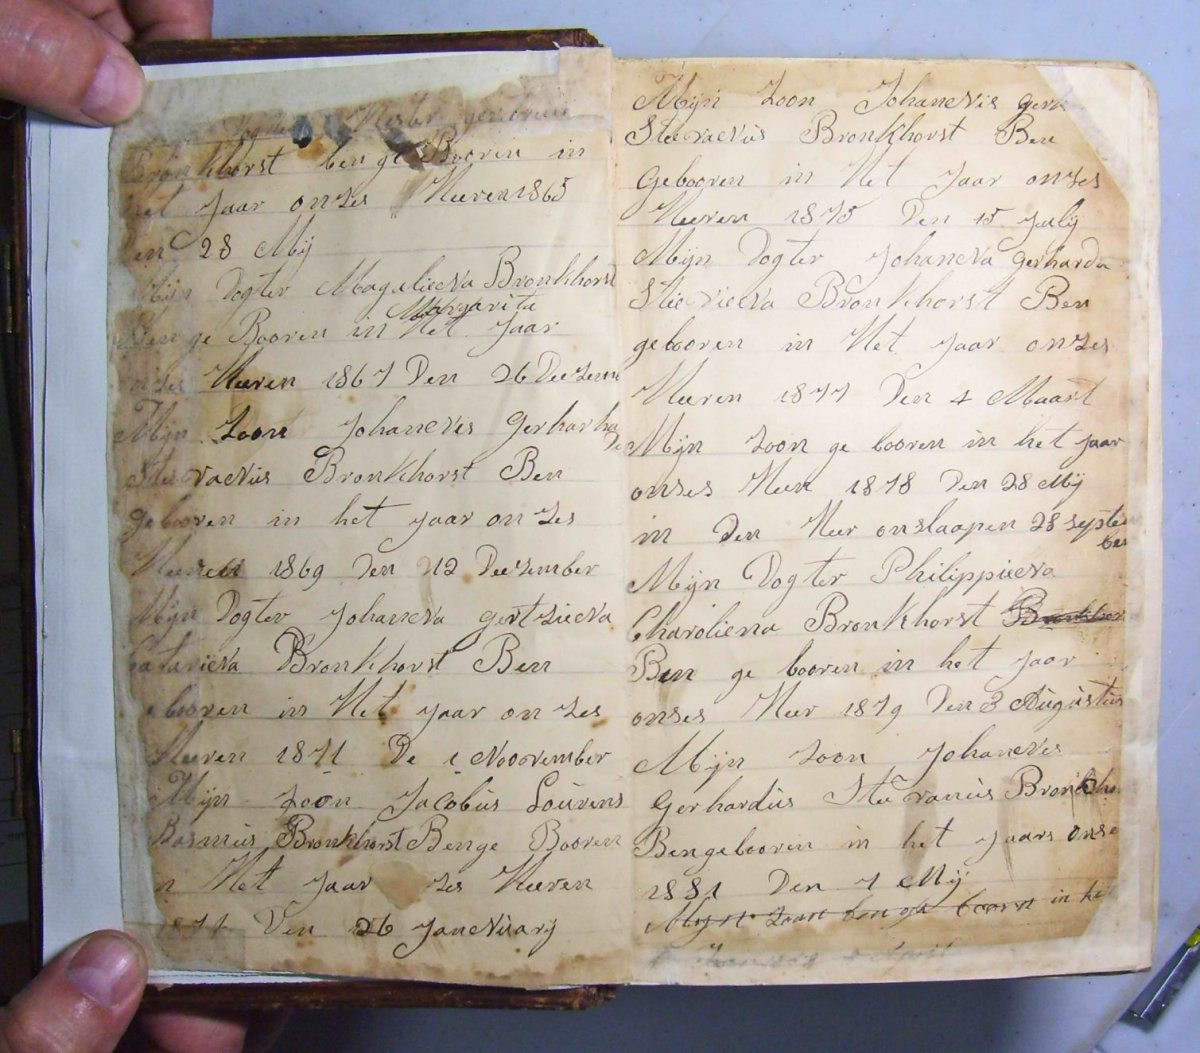 Dogter Hester gertruui
Bronkhorst ben ge Booren in
het Jaar onzes Heeren 1865
en 28 Mij
Mijn Dogter Magelieena Bronkhorst
Margarita
Ben ge Booren in Het Jaar
onzes Heeren 1867 Den 26 Deezemb
Mijn Zoon Johannes Gerharha
Steevanus Bronkhorst Ben
gebooren in het Jaar onzes
Heeren 1869 Den 12 Deezember
Mijn Dogter Johanena gertziena
Catariena Bronkhorst Ben
gebooren in Het Jaar onzes
Heeren 1871 De 1 Nooovember
Mijn Zoon Jacobus Lourens
Rasmus Bronkhorst Benge Booren
n Het Jaar zes Heeren
1874 Den 26 Janeuarij
Mijn Zoon Johanenis ger
Steevanus Bronkhorst Ben
Gebooren in Het Jaar onzes
Heeren 1875 Den 15 Julij
Mijn Dogter Johanena gerharda
Steeviena Bronkhorst Ben
gebooren in Het Jaar onzes
Heeren 1877 Den 4 Maart
Mijn Zoon ge booren in het Jaar
onses Heen 1878 Den 28 Mij
in Den Heer onslaapen 28 Septe
ber
Mijn Dogter Philippiena
Charoliena Bronkhorst Bronkhor
Ben ge booren in het Jaar
onses Heer 1879 Den 3 Augustus
Mijn Zoon Johanenis
Gerhardus Steevanus Bronkho
Bengebooren in het Jaars onse
1881 Den 7 Mij
Mijn Zoon ben ge boorn in he